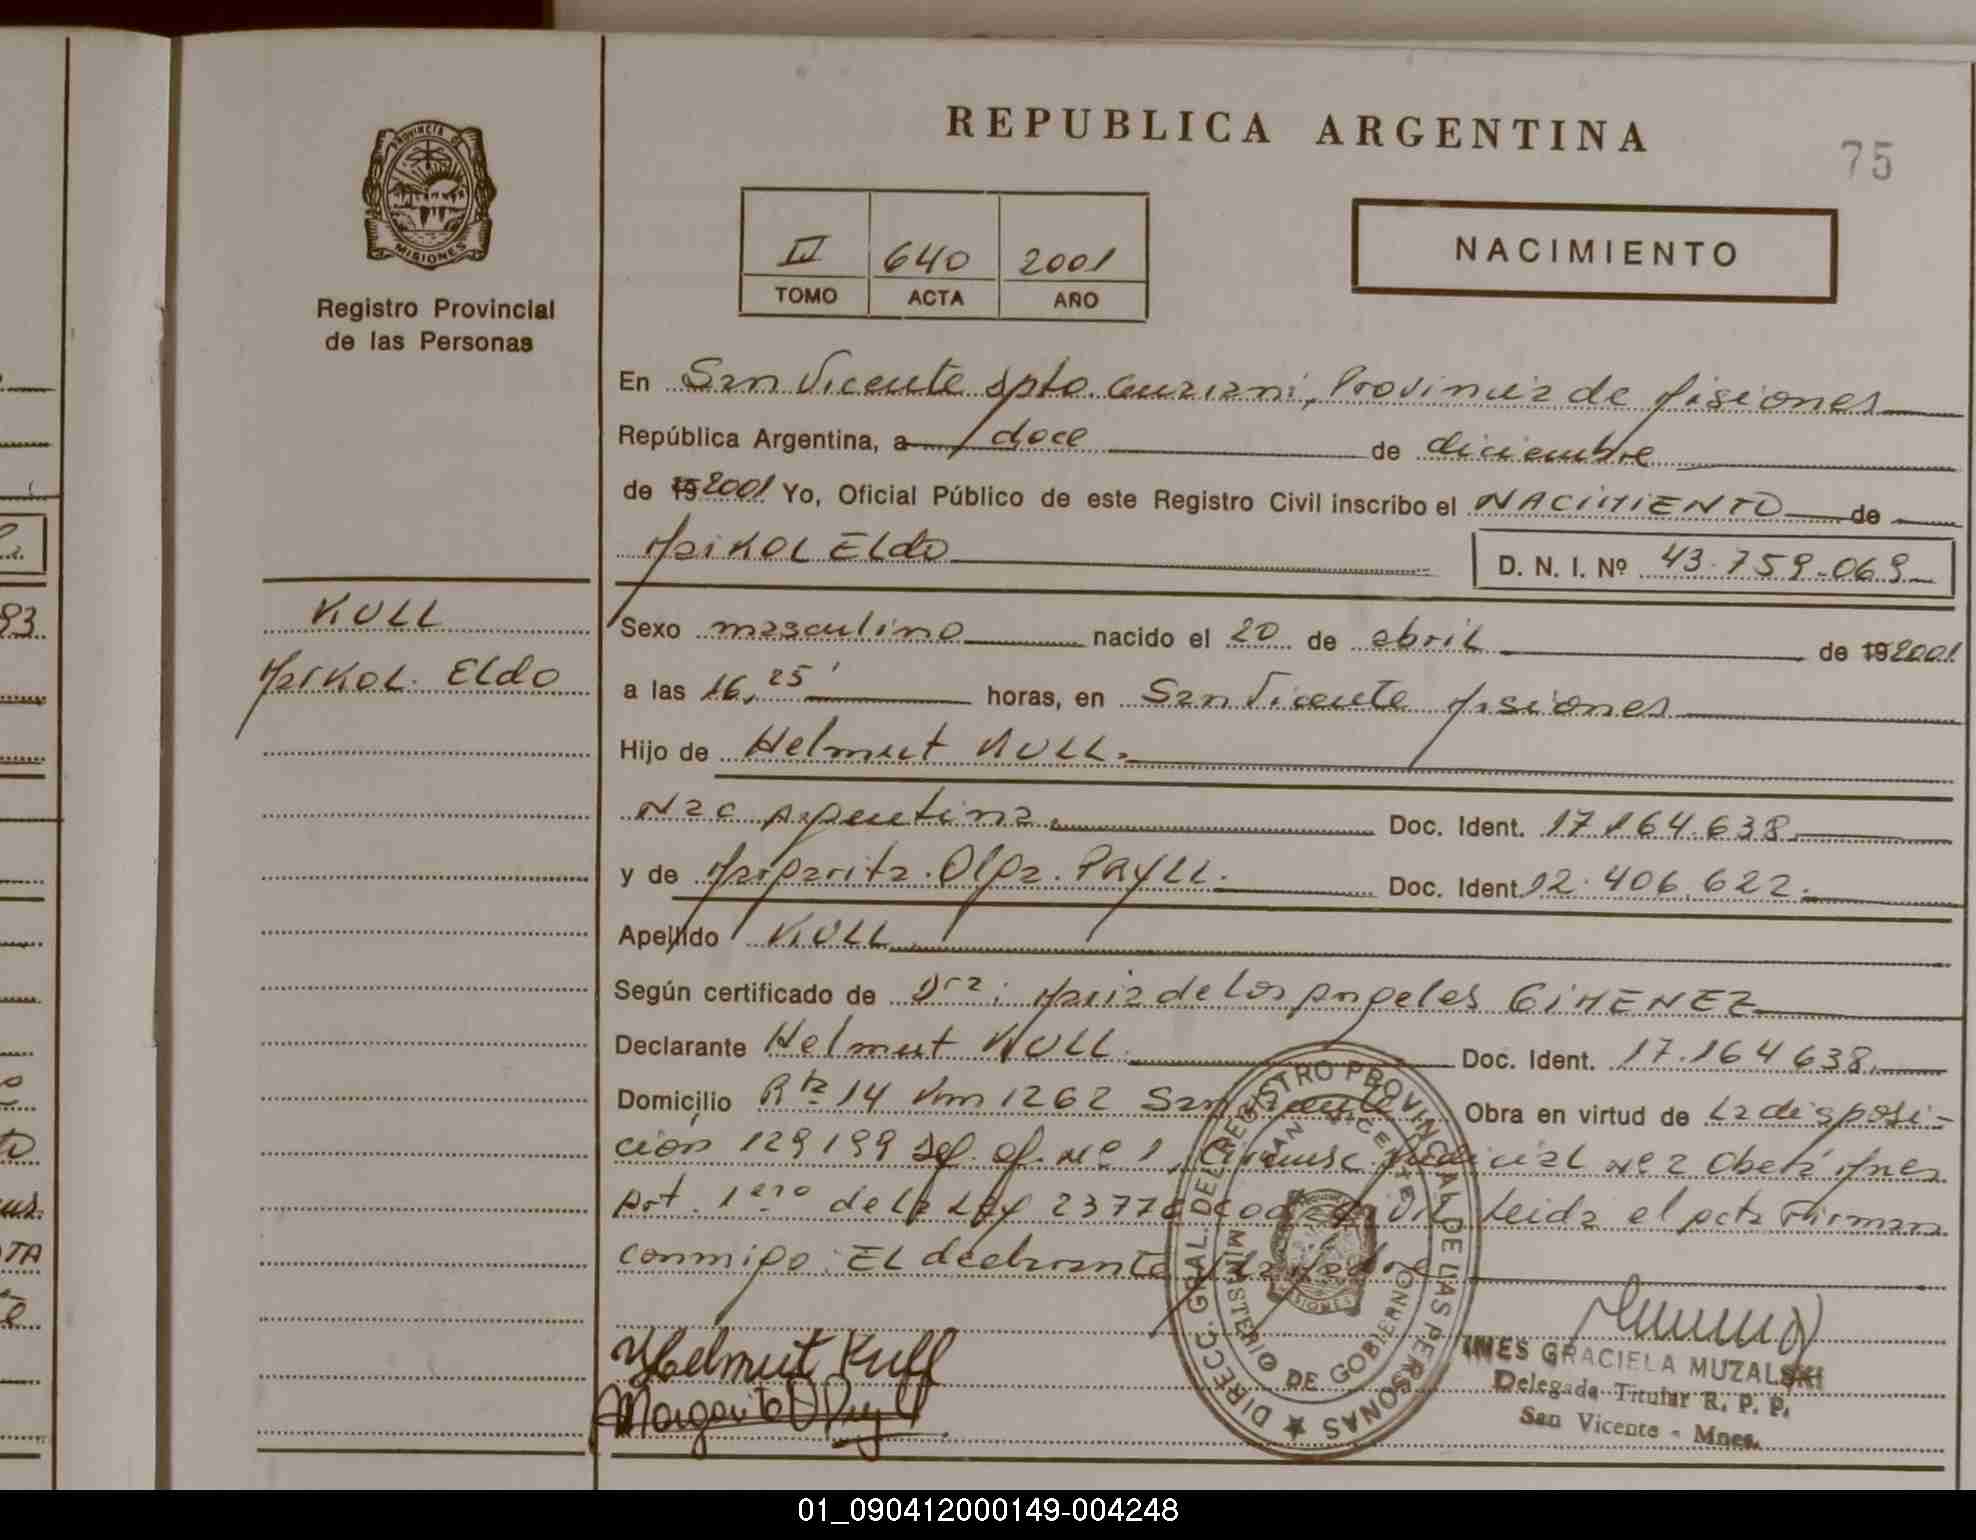 REPUBLICA ARGENTINA
75
PROVINCIA DE
MISIONES
Registro Provincial
de las Personas
II 640 2001
TOMO ACTA AÑO
NACIMIENTO
En San Vicente Dpto. Guarani, Provincia de Misiones
República Argentina, a doce de diciembre
de 19 2001 Yo, Oficial Público de este Registro Civil inscribo el NACIMIENTO de
Maikol Eldo
D. N. I. Nº 43.759.069
KULL
Maikol Eldo
Sexo masculino nacido el 20 de abril de 19 2001
a las 16,25' horas, en San Vicente Misiones
Hijo de Helmut KULL.
Nac Argentina. Doc. Ident. 17.164.638
y de Margarita Olga PRYLL. Doc. Ident. 12.406.622.
Apellido KULL
Según certificado de Dra: Maria de Los Angeles GIMENEZ
Declarante Helmut KULL Doc. Ident. 17.164.638.
Domicilio Rta 14 Km 1262 San Vicente Obra en virtud de La disposi-
ción 129/99 Def. of. Nº 1, Circunsc Judicial Nº 2 Oberá Mnes
Art. 1ero de la Ley 23776 Leida el acta Firman
conmigo: EL declarante y la Madre
DIRECC. GRAL. DEL REGISTRO PROVINCIAL DE LAS PERSONAS
SAN VICENTE
MINISTERIO DE GOBIERNO
MISIONES
Helmut Kull
Margarita O
INES GRACIELA MUZALSKI
Delegada Titular R. P. P.
San Vicente - Mnes.
01_090412000149-004248